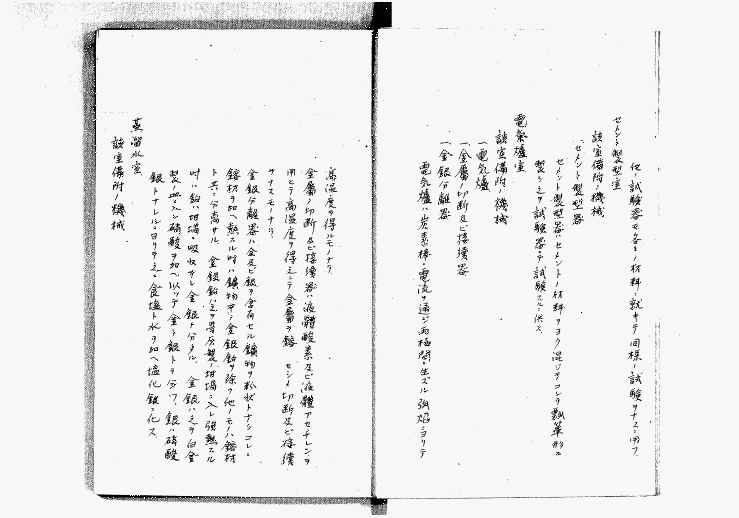 他ノ試験器モ各々ノ材料ニ就キテ同様ノ試験ヲナスニ用フ
セメント製型室
該室備附ノ機械
セメント製型器
セメント製型器ハセメントノ材料ヲヨク混ジテコレヲ瓢箪形ニ
製シ之ヲ試験器ニテ試験スルニ供ス
電気爐室
該室備附ノ機械
一電気爐
一金属ノ切断及ビ接續器
一金銀分離器
電気爐ハ炭素棒ニ電流ヲ通ジ両極間ニ生ズル弧焔ニヨリテ
高温度ヲ得ルモノナリ
金属ノ切断及ビ接續器ハ液體酸素及ビ液體アセチレンヲ
用ヒテ高温度ヲ得之ニテ金属ヲ鎔セシメ切断及ビ接續
サスモノナリ
金銀分離器ハ金及ビ銀ヲ含有セル鑛物ヲ粉状トナシコレニ
鎔材ヲ加ヘ熱スル時ハ鑛物中ノ金銀鉛ヲ除ク他ノモノハ鎔材
ト共ニ分离サル 金銀鉛ハ之ヲ骨灰製ノ坩堝ニ入レ強熱スル
時ハ鉛ハ坩堝ニ吸收サレ金銀ト分タル 金銀ハ之ヲ白金
製ノ皿ニ入レ硝酸ヲ加ヘ以ッテ金ト銀トヲ分ツ 銀ハ硝酸
銀トナレルニヨリ之ニ食塩ト水ヲ加ヘ塩化銀ニ化ス
蒸溜水室
該室備附ノ機械